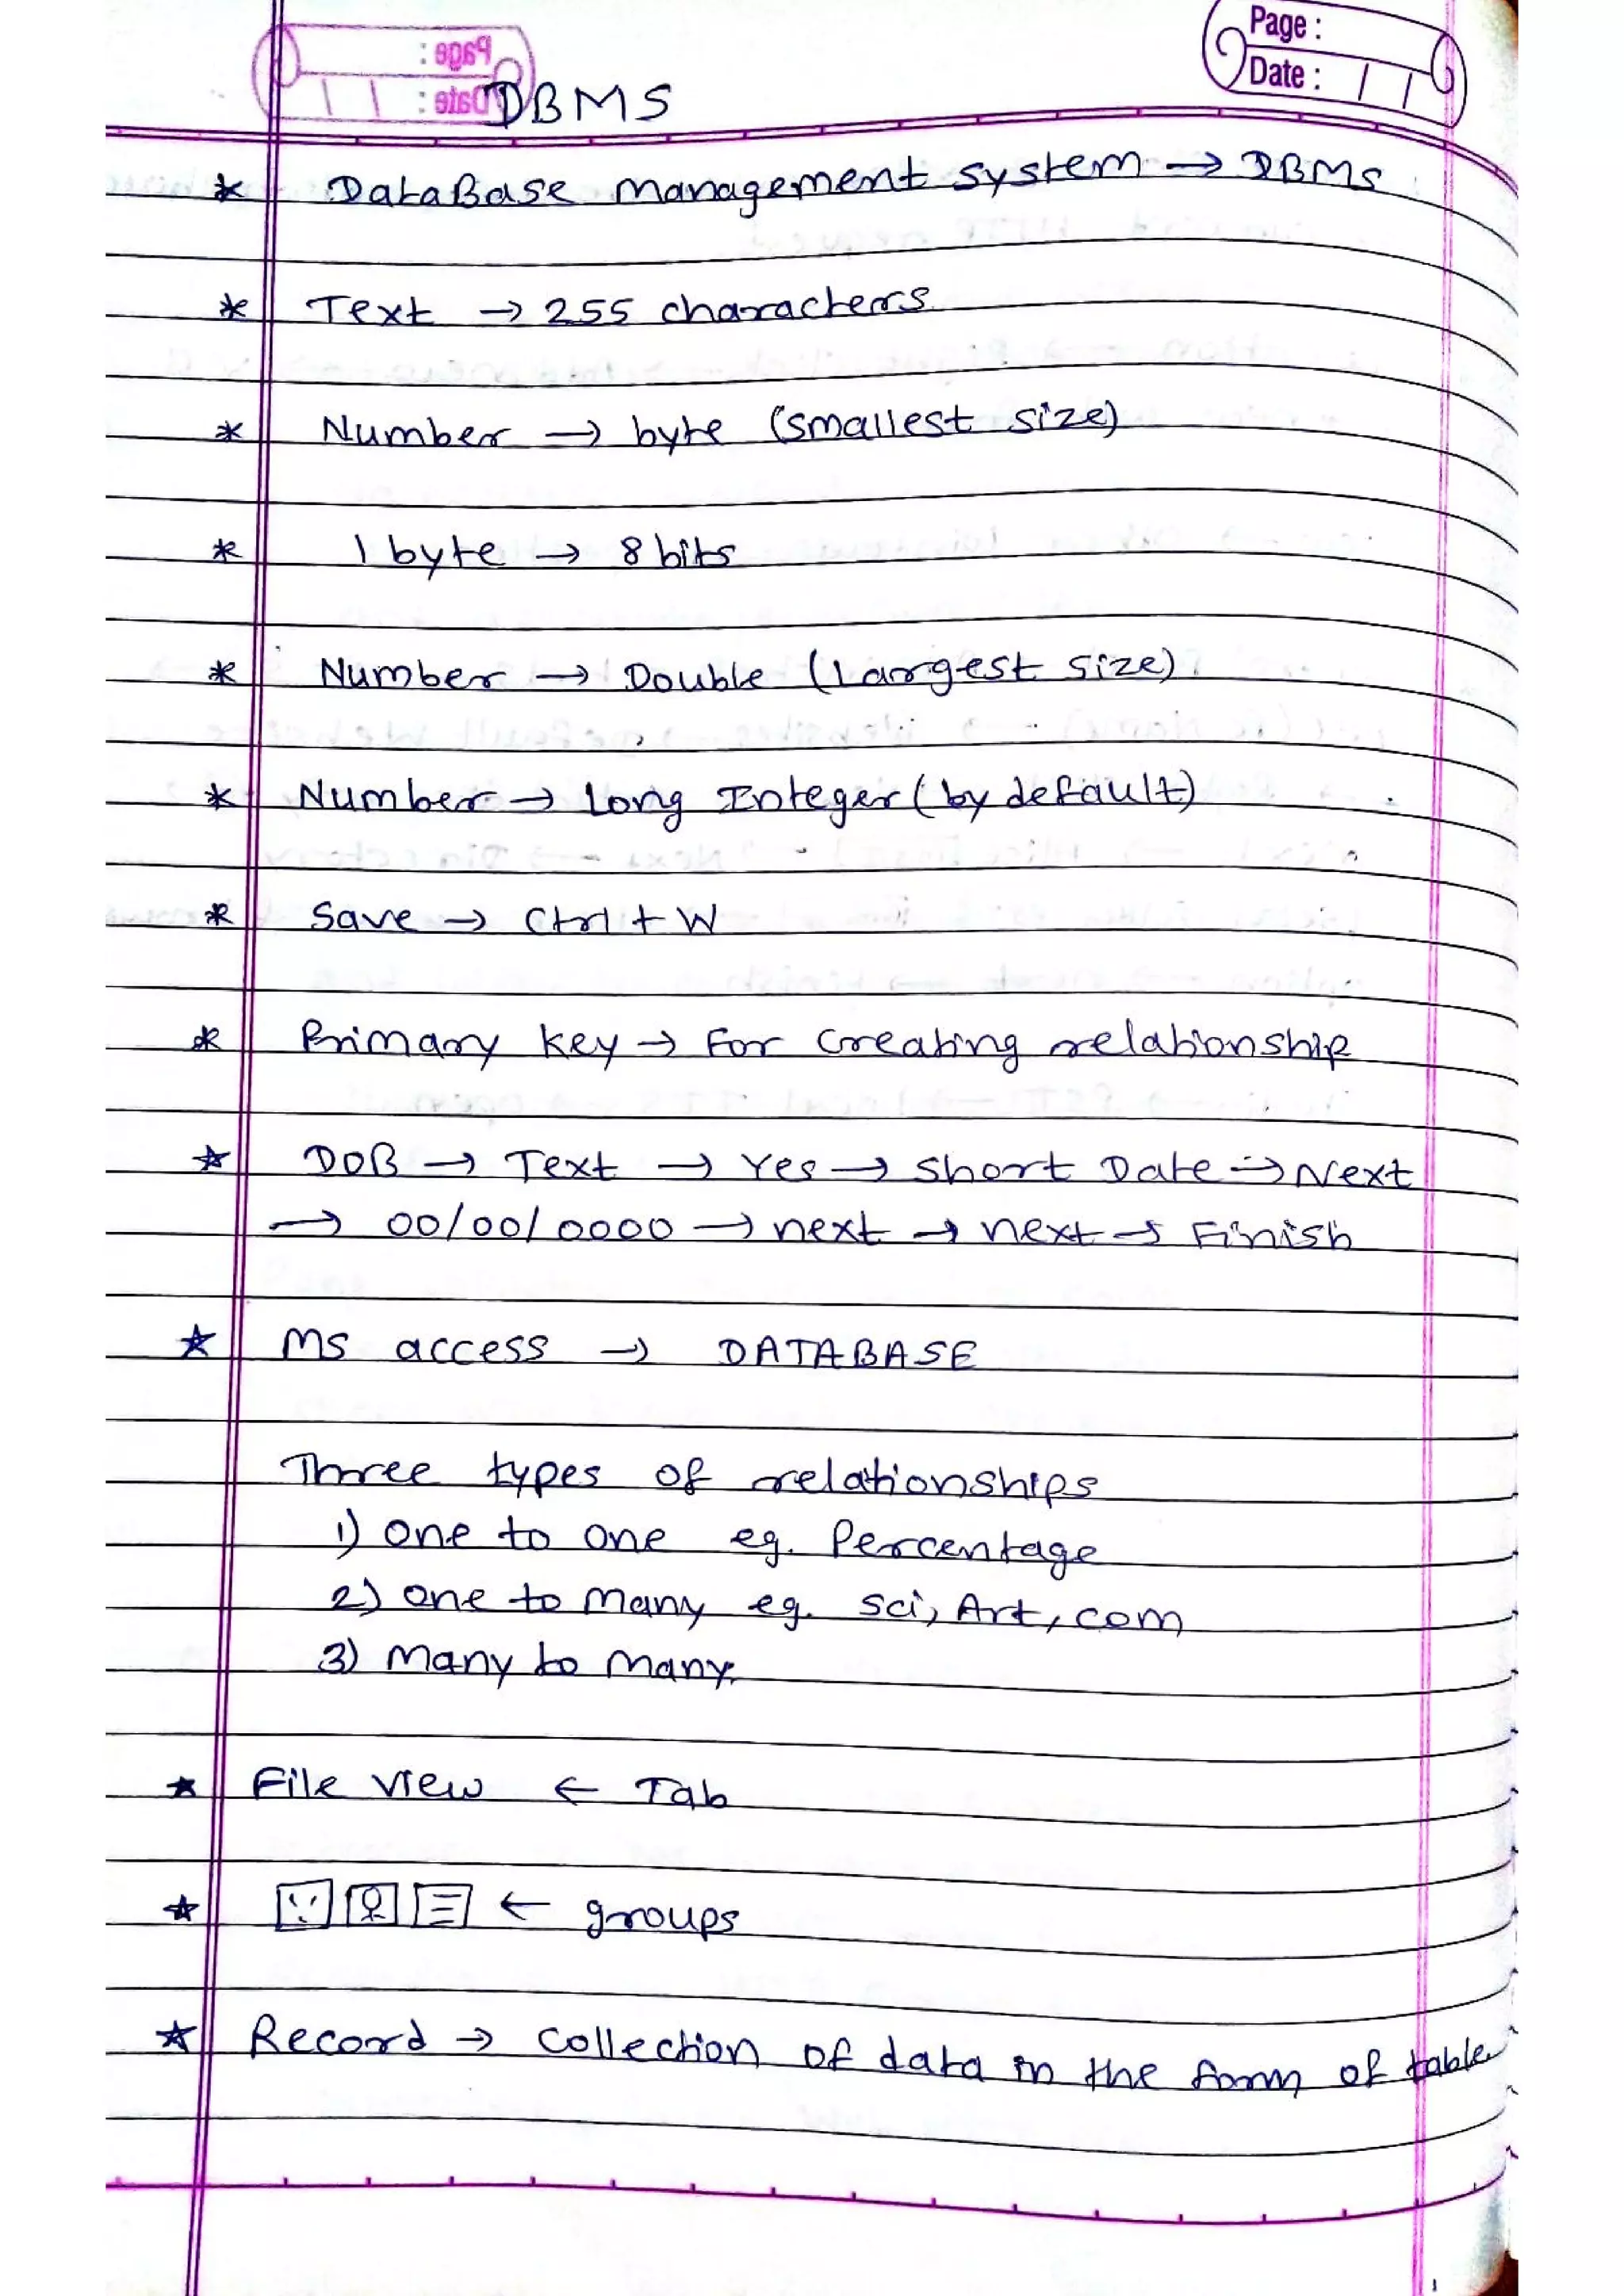 Page :
Date : / /
DBMS
* DataBase Management System → DBMS
* Text → 255 characters
* Number → byte (smallest size)
* 1 byte → 8 bits
* Number → Double (Largest size)
* Number → Long Integer (by default)
* Save → Ctrl + W
* Primary key → For creating relationship
* DOB → Text → Yes → Short Date → Next
→ 00/00/0000 → next → next → Finish
* MS access → DATABASE
Three types of relationships
1) One to One eg. Percentage
2) One to Many eg. Sci, Art, com
3) Many to Many.
* File View ← Tab
* ← groups
* Record → Collection of data in the form of table